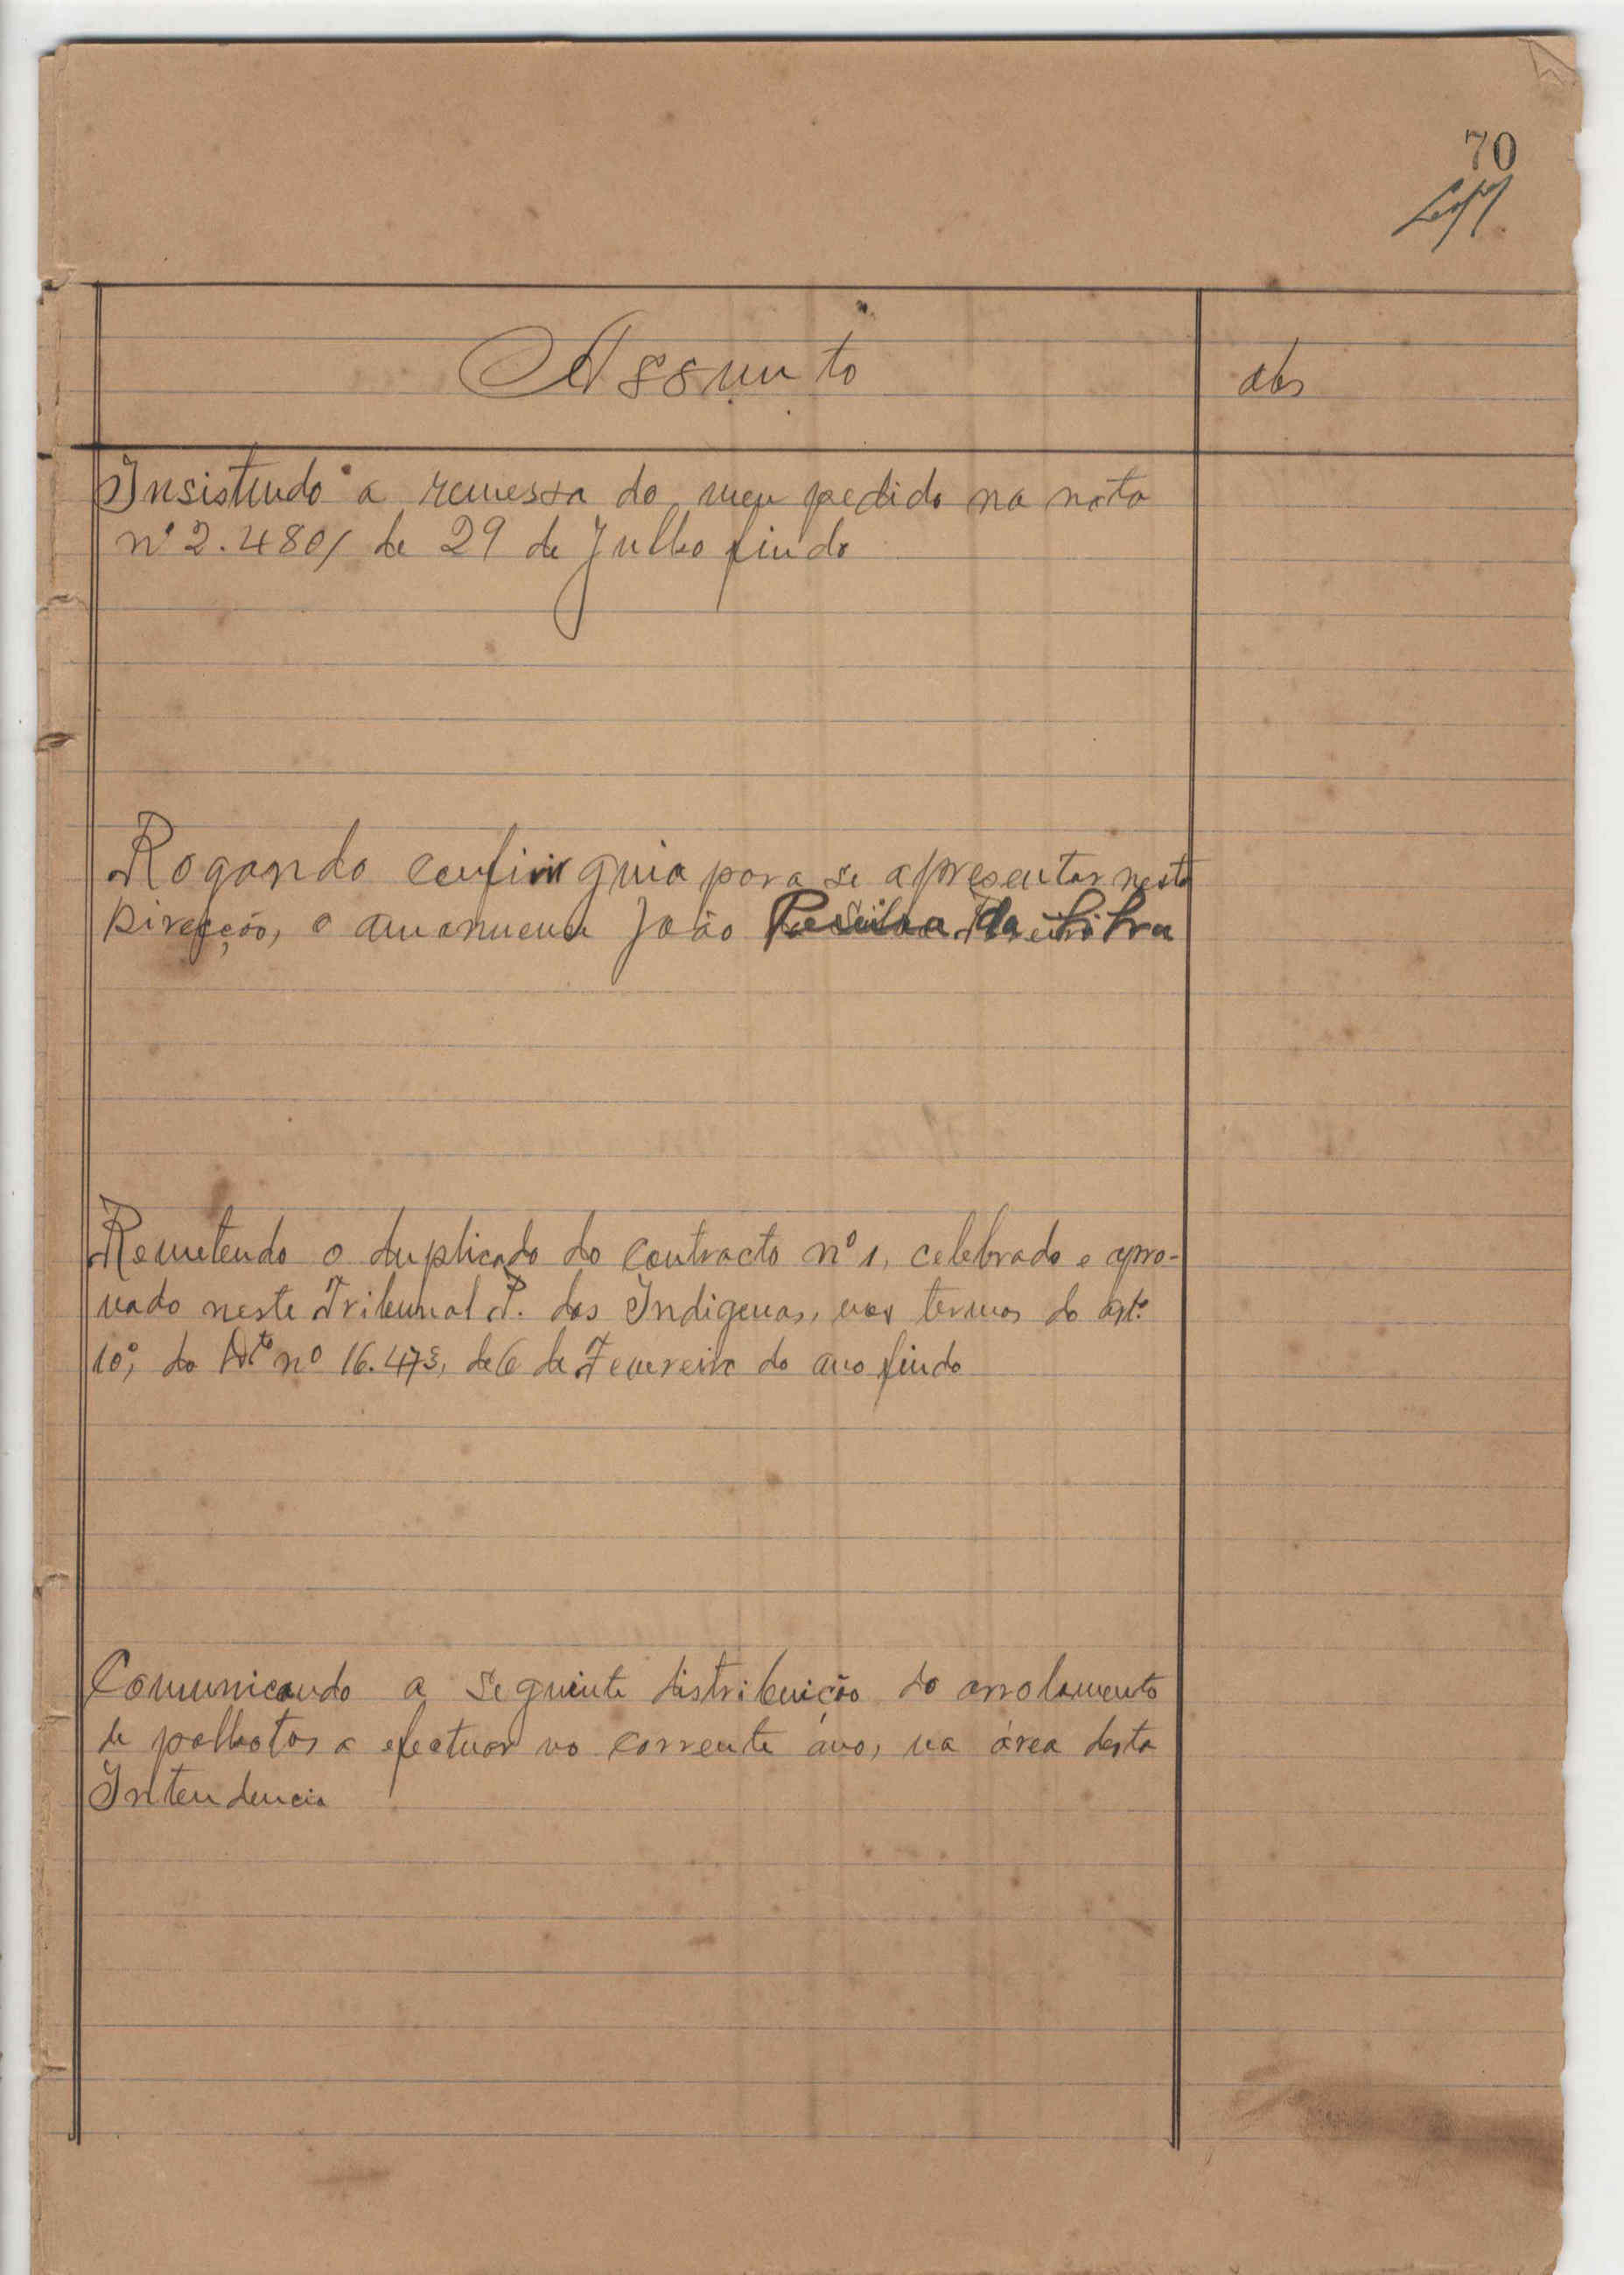 70
Assunto
obs
Insistindo a remessa do meu pedido na nota
nº 2.480/ de 29 de Julho findo
Rogando conferir guia para se apresentar nesta
Direcção, o amanuense João
Remetendo o duplicado do contracto nº 1, celebrado e apro-
vado neste Tribunal P. dos Indigenas, nos termos do artº
10º, do Dtº nº 16.473, de 6 de Fevereiro do ano findo
Comunicando a seguinte distribuição do arrolamento
de palhotas a efectuar no corrente áno, na área desta
Intendencia